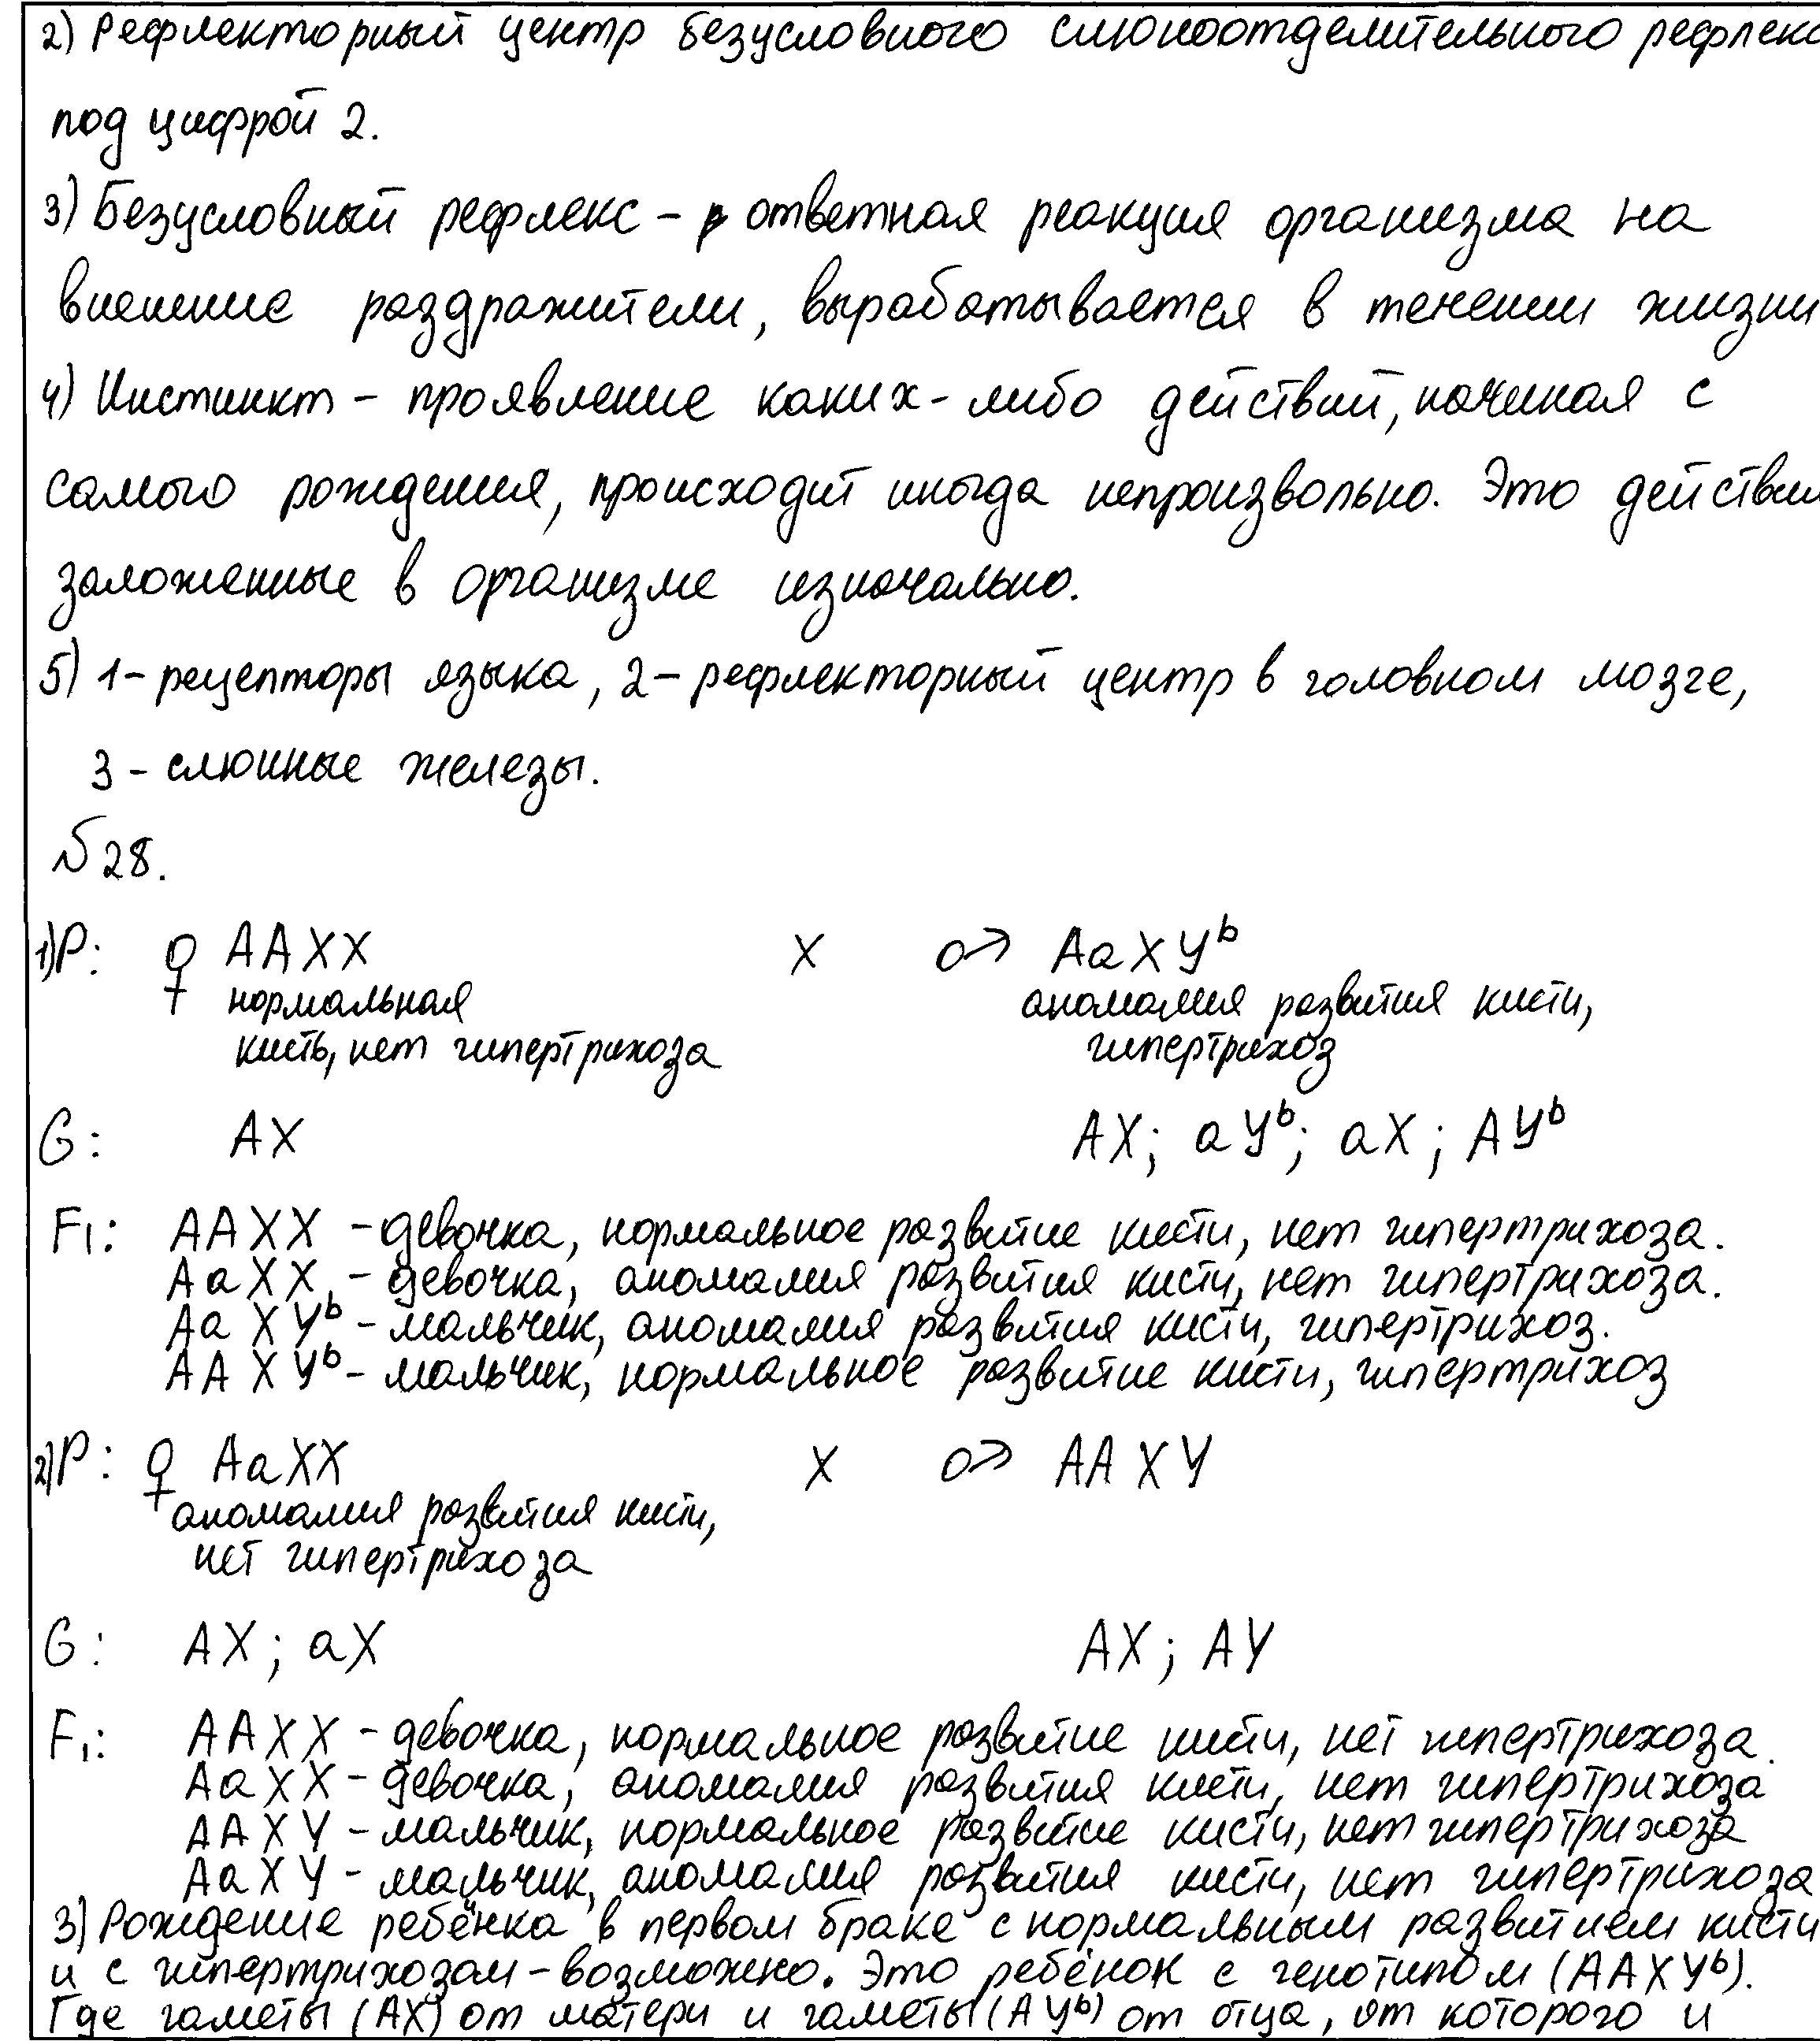 2) Рефлекторный центр безусловного слюноотделительного рефлекс
под цифрой 2.
3) Безусловный рефлекс - ответная реакция организма на
внешние раздражители, вырабатывается в течении жизни
4) Инстинкт - проявление каких-либо действий, начиная с
самого рождения, происходит иногда непроизвольно. Это действия
заложенные в организме изначально.
5) 1- рецепторы языка, 2- рефлекторный центр в головном мозге,
3 - слюнные железы.
№28.
1) P: ♀ AAXX x ♂ AaXY^b
нормальная аномалия развития кисти,
кисть, нет гипертрихоза гипертрихоз
G: AX AX; aY^b; aX; AY^b
F1: AAXX - девочка, нормальное развитие кисти, нет гипертрихоза.
AaXX - девочка, аномалия развития кисти, нет гипертрихоза.
AaXY^b - мальчик, аномалия развития кисти, гипертрихоз.
AAXY^b - мальчик, нормальное развитие кисти, гипертрихоз
2) P: ♀ AaXX x ♂ AAXY
аномалия развития кисти,
нет гипертрихоза
G: AX; aX AX; AY
F1: AAXX - девочка, нормальное развитие кисти, нет гипертрихоза.
AaXX - девочка, аномалия развития кисти, нет гипертрихоза
AAXY - мальчик, нормальное развитие кисти, нет гипертрихоза
AaXY - мальчик, аномалия развития кисти, нет гипертрихоза
3) Рождение ребёнка в первом браке с нормальным развитием кисти
и с гипертрихозом - возможно. Это ребёнок с генотипом (AAXY^b).
Где гаметы (AX) от матери и гаметы (AY^b) от отца, от которого и